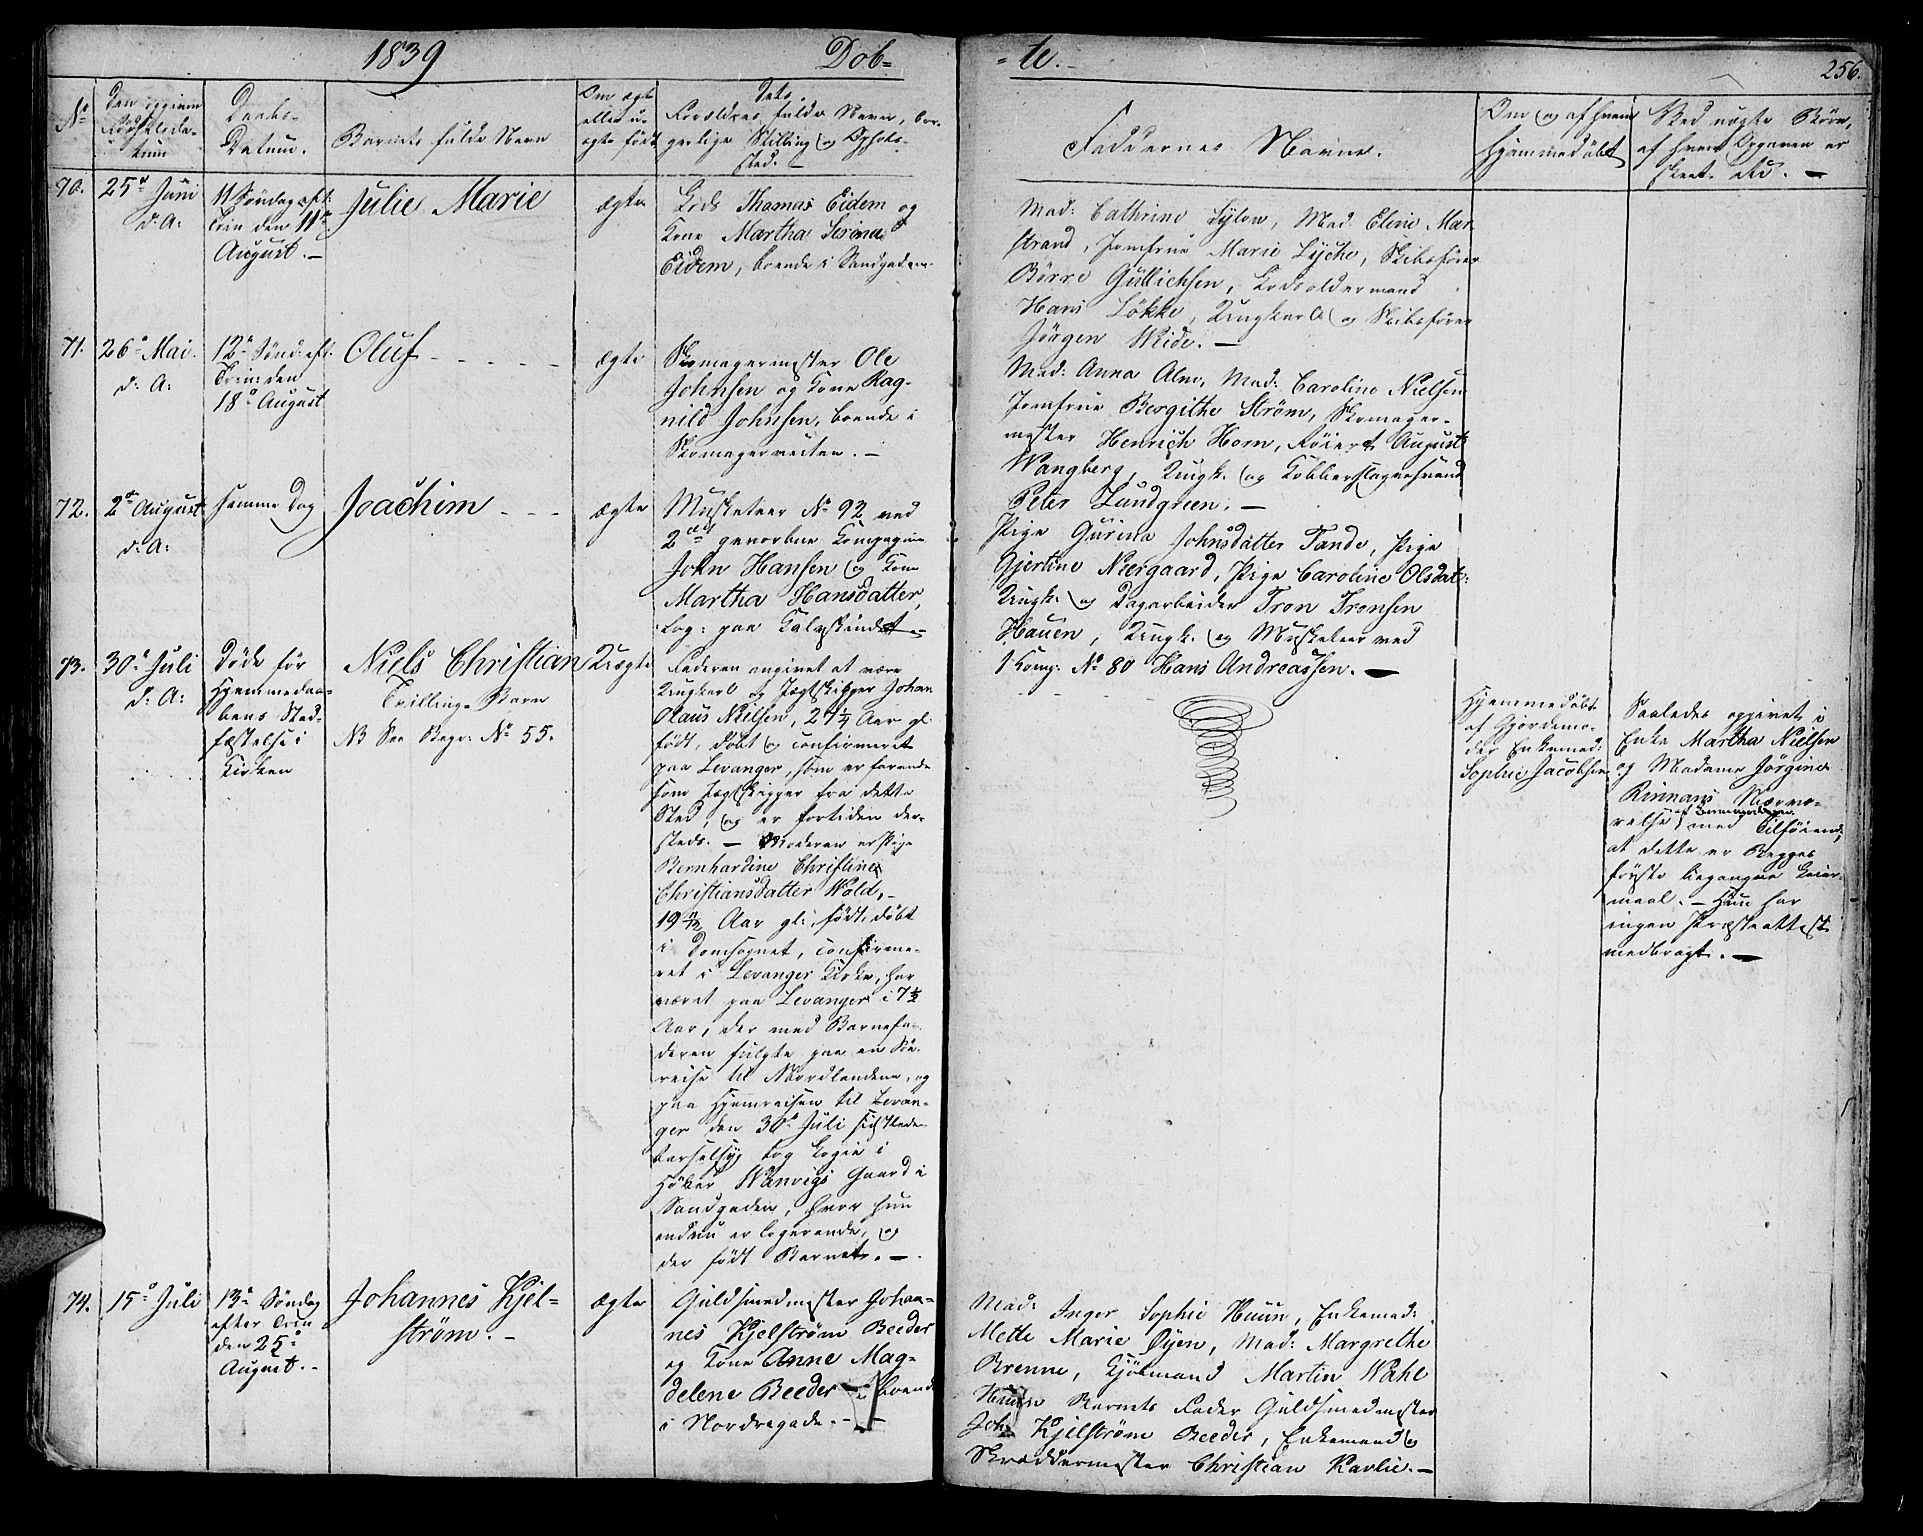 1839
Døb=
=te.
256.
No
Den opgivne
Fødselsda-
tum
Daabs-
Datum.
Barnets fulde Navn
Om ægte
eller u-
ægte født
Dets
Forældres fulde Navn, bor-
gerlige Stilling og Opholds-
sted.
Faddernes Navne.
Om og af hvem
hjemmedøbt
Ved uægte Børn,
af hvem Opgaven er
skeet &c. —
70.
25de Juni
d: A:
11 Søndag eft:
Trin den 11te
August. —
Julie Marie
ægte
Lods Thomas Eidem og
Kone Martha Serina
Eidem, boende i Sandgaden.
Mad: Cathrine Sylow, Mad. Eline Mar-
strand, Jomfrue Marie Lyche, Skibsfører
Børre Gullichsen, Lodsoldermand
Hans Løkke, Ungkarl og Skibsfører
Jørgen Wide. —
71.
26de Mai.
d: A:
12te Sønd: eft:
Trin: den
18de August
Oluf
ægte
Skomagermester Ole
Johnsen og Kone Rag-
nild Johnsen, boende i
Skomagerveiten. —
Mad: Anna Alm, Mad: Caroline Nielsen
Jomfrue Bergithe Strøm, Skomager-
mester Henrich Horn, Føiert August
Wangberg, Ungk. og Kobberslagersvend
Peter Lundgreen. —
72.
2den August
d: A:
samme Dag
Joachim
ægte
Musketeer No 92 ved
2det gevorbne Compagnie
John Hansen og Kone
Martha Hansdatter,
log: paa Kalvskindet —
Pige Gurina Johnsdatter Tande, Pige
Gjertine Neergaard, Pige Caroline Olsdat:
Ungk. og Dagarbeider Tron Tronsen
Hauen, Ungk. og Musketeer ved
1 Komp. No 80 Hans Andreassen. —
73.
30te Juli
d: A:
Døde før
Hjemmedaa-
bens Stad-
fæstelse i
Kirken
Niels Christian
Trilling-Barn
NB See Begr: No 55.
Uægte
Faderen angivet at være
Ungkarl og Jægtskipper Johan
Olaus Nielsen, 24½ Aar gl.
født, døbt og confirmeret
paa Levanger, som er farende
som Jægtskipper fra dette
Sted, og er fortiden der-
steds. — Moderen er Pige
Bernhardine Christine
Christiansdatter Wold, —
19 11/12 Aar gl:, født, døbt
i Domsognet, confirme-
ret i Levanger Kirke, har
været paa Levanger i 7½
Aar, der med Barnefa-
deren fulgte paa en Søe-
reise til Nordlandene, og
paa Hjemreisen til Levan-
ger den 30te Juli sidstleden
barselsyg tog Logie i
Høker Wanvigs Gaard i
Sandgaden, hvor hun
endnu er logerende, og
der født Barnet. —
Hjemmedøbt
af Gjordemo-
der Enkemad:
Sophie Jacobsen
Saaledes opgivet i
Enke Martha Nielsen
og Madame Jørgine
Rinnans Nærvæ-
relse, med Tilføiende,
at dette er Begges
første begangne Leier-
maal. — Hun har
ingen Præsteattest
medbragt. —
74.
15de Juli
13de Søndag
efter Trin
den 25de
August. —
Johannes Kjel=
strøm. —
ægte
Guldsmedmester Johan-
nes Kjelstrøm Beeder
og Kone Anne Mag-
delene Beeder — boende
i Nordregade. —
Mad: Inger Sophie Huun, Enkemad:
Mette Marie Øyen, Mad: Margrethe
Brenne, Kjøbmand Martin Wahl
Huun Barnets Fader Guldsmedmester
Joh. Kjelstrøm Beeder, Enkemand og
Skreddermester Christian Kavlie. —